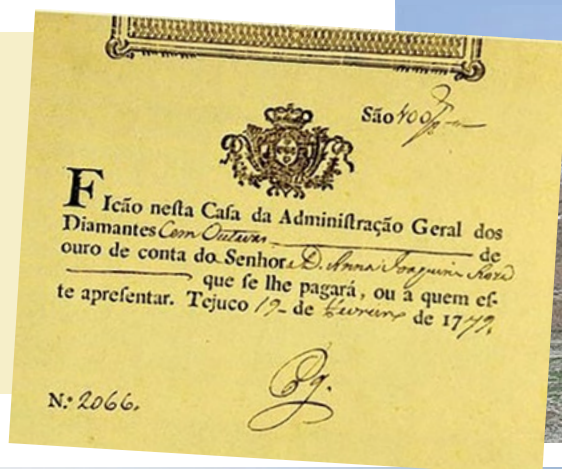 São 100
FIcão neſta Caſa da Adminiſtração Geral dos
Diamantes Cem Outavas de
ouro de conta do Senhora D. Anna Joaquina Roza
que ſe lhe pagará, ou a quem eſ-
te apreſentar. Tejuco 19 de Fevereiro de 1779.
N.º 2066.